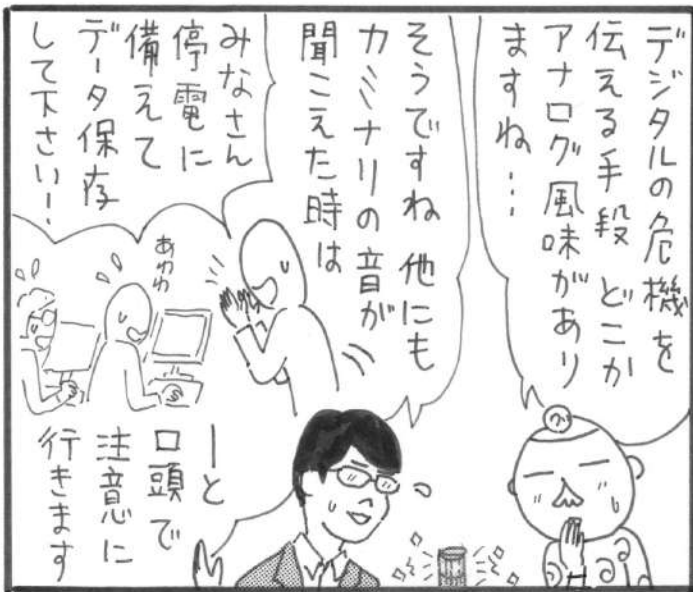 デジタルの危機を
伝える手段 どこか
アナログ風味があり
ますね…
そうですね 他にも
カミナリの音が
聞こえた時は
みなさん
停電に
備えて
データ保存
して下さい!
あわわ
ーと
口頭で
注意に
行きます